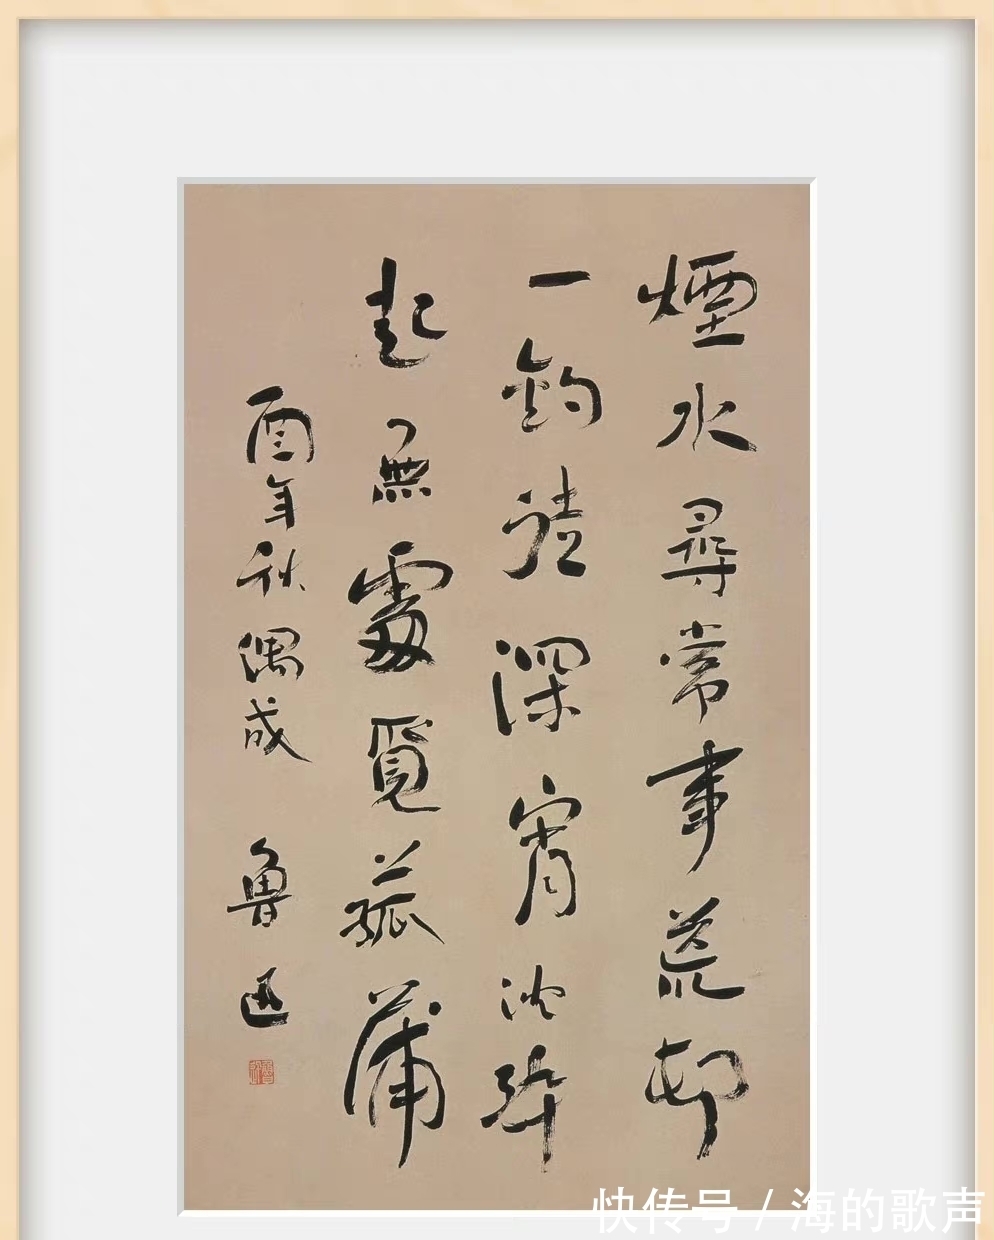 煙水尋常事荒邨
一釣徒深宵沈醉
起無處覓菰蒲
酉年秋偶成
魯迅
快传号 / 海的歌声